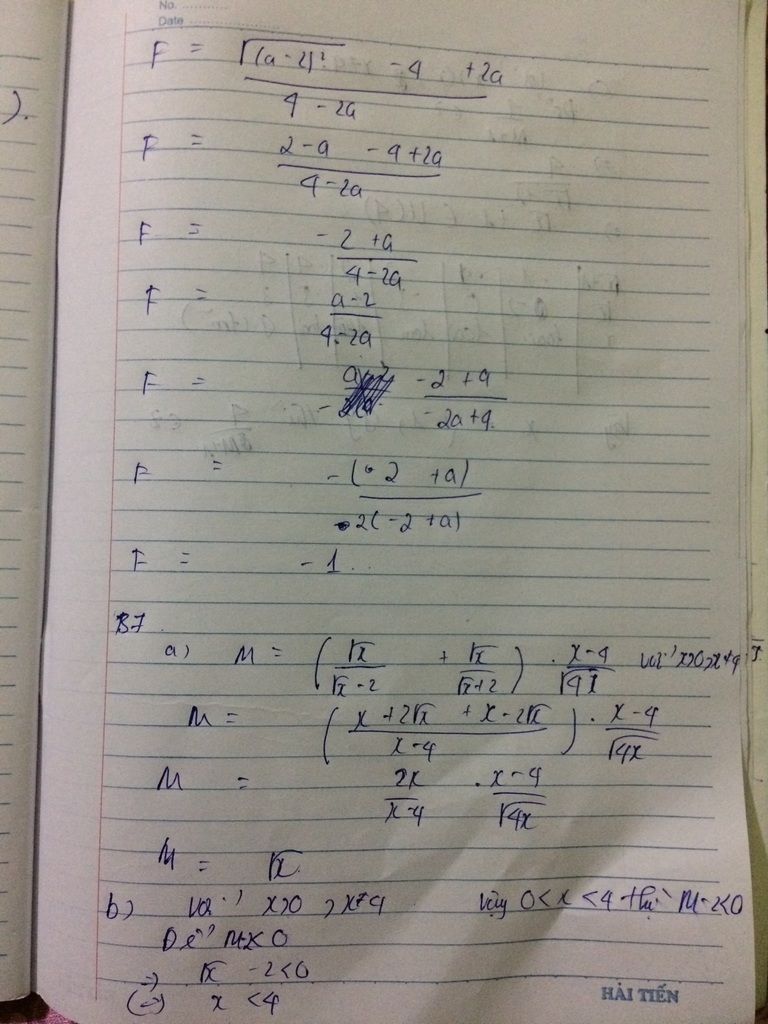 No.
Date
).
F = √(a-2)² - 4 + 2a / 4 - 2a
F = 2 - a - 4 + 2a / 4 - 2a
F = - 2 + a / 4 - 2a
F = a - 2 / 4 - 2a
F = - 2 + a / - 2a + 4
F = - (- 2 + a) / 2(- 2 + a)
F = - 1
B7
a) M = (√x / √x - 2 + √x / √x + 2) . x - 4 / √4x với x>0, x≠4
M = (x + 2√x + x - 2√x / x - 4) . x - 4 / √4x
M = 2x / x - 4 . x - 4 / √4x
M = √x
b) với x>0, x≠4 vậy 0 < x < 4 thì M - 2 < 0
Để M < 0
⇒ √x - 2 < 0
(⇒) x < 4
HẢI TIẾN